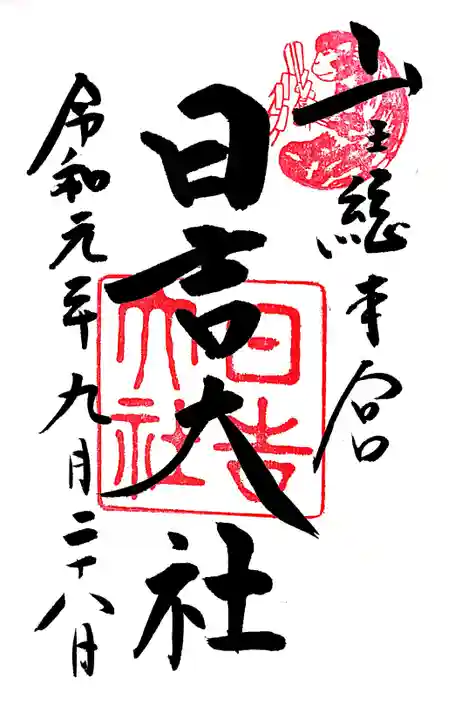 山王総本宮
日吉大社
日吉大社
令和元年九月二十八日